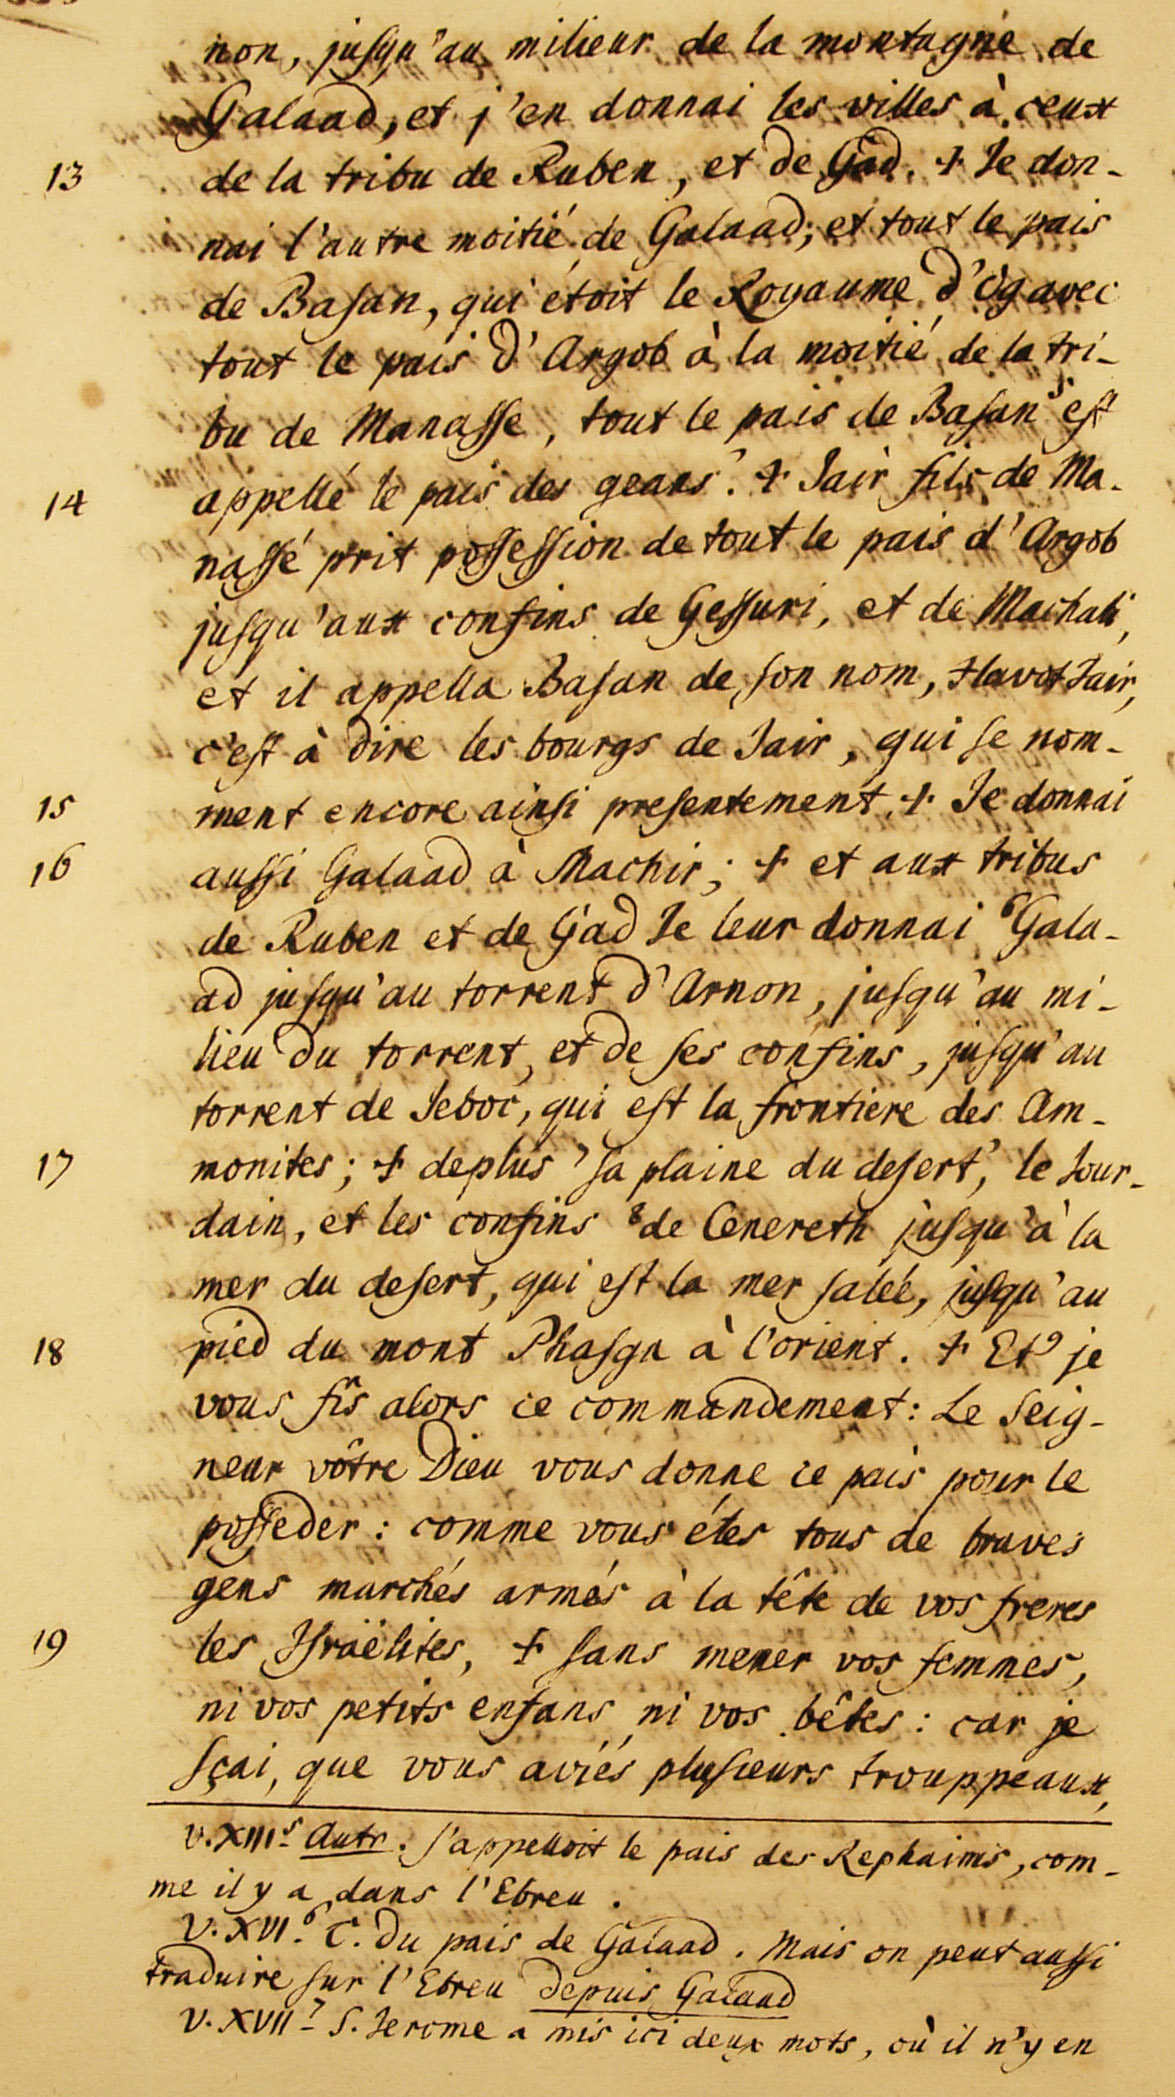 non, jusqu'au milieur de la montagne de
Galaad, et j'en donnai les villes à ceux
13 de la tribu de Ruben, et de Gad. + Je don-
nai l'autre moitié de Galaad; et tout le païs
de Basan, qui étoit le Royaume d'Og avec
tout le païs d'Argob à la moitié de la tri-
bu de Manasse, tout le païs de Basan 5 est
14 appellé le païs des geans. + Jaïr fils de Ma-
nassé prit possession de tout le païs d'Argob
jusqu'aux confins de Gessuri, et de Machati,
et il appella Basan de son nom, Havot Jaïr,
c'est à dire les bourgs de Jaïr, qui se nom-
15 ment encore ainsi presentement. + Je donnai
16 aussi Galaad à Machir; + et aux tribus
de Ruben et de Gad Je leur donnai 6 Gala-
ad jusqu'au torrent d'Arnon, jusqu'au mi-
lieu du torrent, et de ses confins, jusqu'au
torrent de Jeboc, qui est la frontiere des Am-
17 monites; + deplus 7 sa plaine du desert, le Jour-
dain, et les confins 8 de Cenereth jusqu'à la
mer du desert, qui est la mer salée, jusqu'au
18 pied du mont Phasga à l'orient. + Et 9 je
vous fîs alors ce commandement: Le Seig-
neur vôtre Dieu vous donne ce païs pour le
posseder: comme vous étes tous de braves
gens marchés armés à la tête de vos freres
19 les Israëlites, + sans mener vos femmes,
ni vos petits enfans ni vos bêtes: car je
sçai, que vous aviés plusieurs trouppeaux,
V. XIII. 5 Autr. s'appelloit le païs des Rephaims, com-
me il y a dans l'Ebreu.
V. XVI. 6 C. du païs de Galaad. Mais on peut aussi
traduire sur l'Ebreu depuis Galaad
V. XVII. 7 S. Jerome a mis ici deux mots, où il n'y en